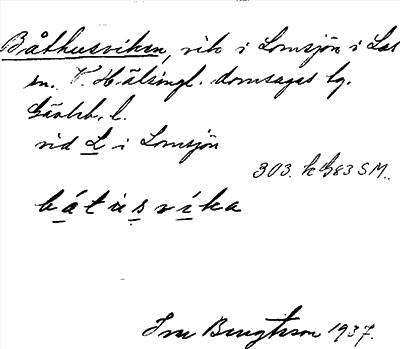 Båthusviken, vik i Lomsjön i Los
sn. V. Hälsingl. domsagas tg.
Gävleb. l.
vid L i Lomsjön
303. h G83 SM.
bátusvíka
Ivar Bengtsson 1937.